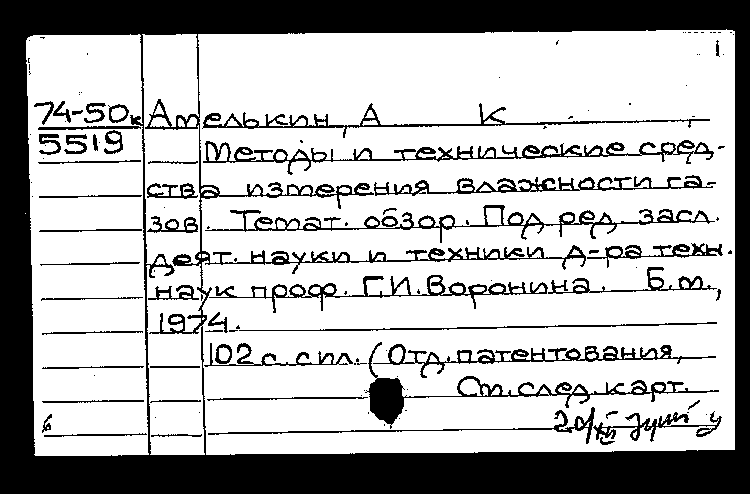 1
74-50к Амелькин, А К
5519 Методы и технические сред-
ства измерения влажности га-
зов. Темат. обзор. Под ред. засл.
деят. науки и техники д-ра техн.
наук проф. Г.И. Воронина. Б.м.,
1974.
102 с. с ил. (Отд. патентования,
См. след. карт.
20/XII